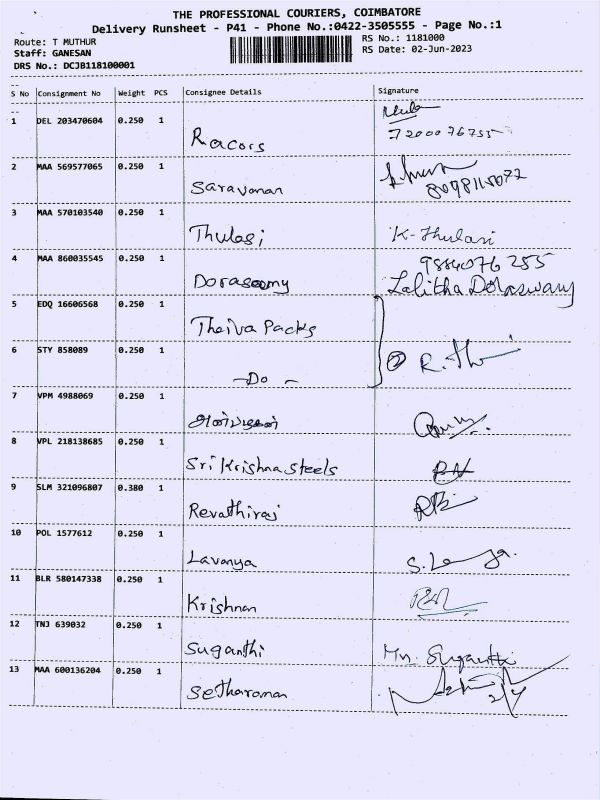 THE PROFESSIONAL COURIERS, COIMBATORE
Delivery Runsheet - P41 - Phone No.:0422-3505555 - Page No.:1
Route: T MUTHUR RS No.: 1181000
Staff: GANESAN RS Date: 02-Jun-2023
DRS No.: DCJB118100001
S No Consignment No Weight PCS Consignee Details Signature
1 DEL 203470604 0.250 1 Racors
7200076755
2 MAA 569577065 0.250 1 Saravanan
3 MAA 570103540 0.250 1 Thulasi K-Thulasi
4 MAA 860035545 0.250 1 Dorasamy 9884076255
Lalitha Doraswamy
5 EDQ 16606568 0.250 1 Theiva Packs
6 STY 858089 0.250 1 -Do- 2
7 VPM 4988069 0.250 1 அன்பழகன்
8 VPL 218138685 0.250 1 Sri Krishna Steels
9 SLM 321096807 0.380 1 Revathiraj
10 POL 1577612 0.250 1 Lavanya
11 BLR 580147338 0.250 1 Krishnan
12 TNJ 639032 0.250 1 Suganthi Mn. Suganthi
13 MAA 600136204 0.250 1 Setharaman